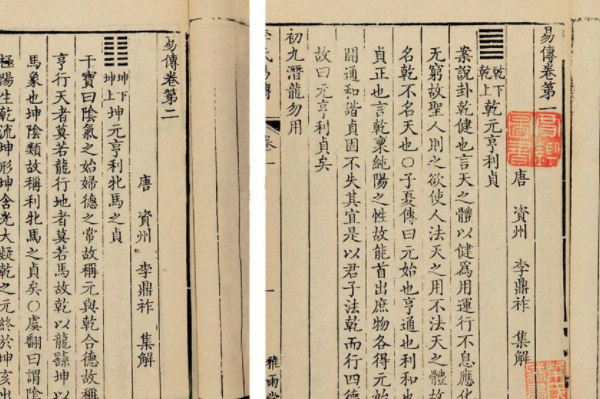 易傳卷第一
唐 資州 李鼎祚 集解
䷀ 乾下 乾上 乾元亨利貞
案說卦乾健也言天之體以健爲用運行不息應化
无窮故聖人則之欲使人法天之用不法天之體故
名乾不名天也〇子夏傳曰元始也亨通也利和也
貞正也言乾稟純陽之性故能首出庶物各得元始
開通和諧貞固不失其宜是以君子法乾而行四德
故曰元亨利貞矣
初九潛龍勿用
氏易傳 卷一 雅雨
易傳卷第二
唐 資州 李鼎祚 集解
䷁ 坤下 坤上 坤元亨利牝馬之貞
干寶曰陰氣之始婦德之常故稱元與乾合德故稱
亨行天者莫若龍行地者莫若馬故乾以龍繇坤以
馬象也坤陰類故稱利牝馬之貞矣〇虞翻曰謂陰
極陽生乾流坤形坤含光大凝乾之元終於坤亥出